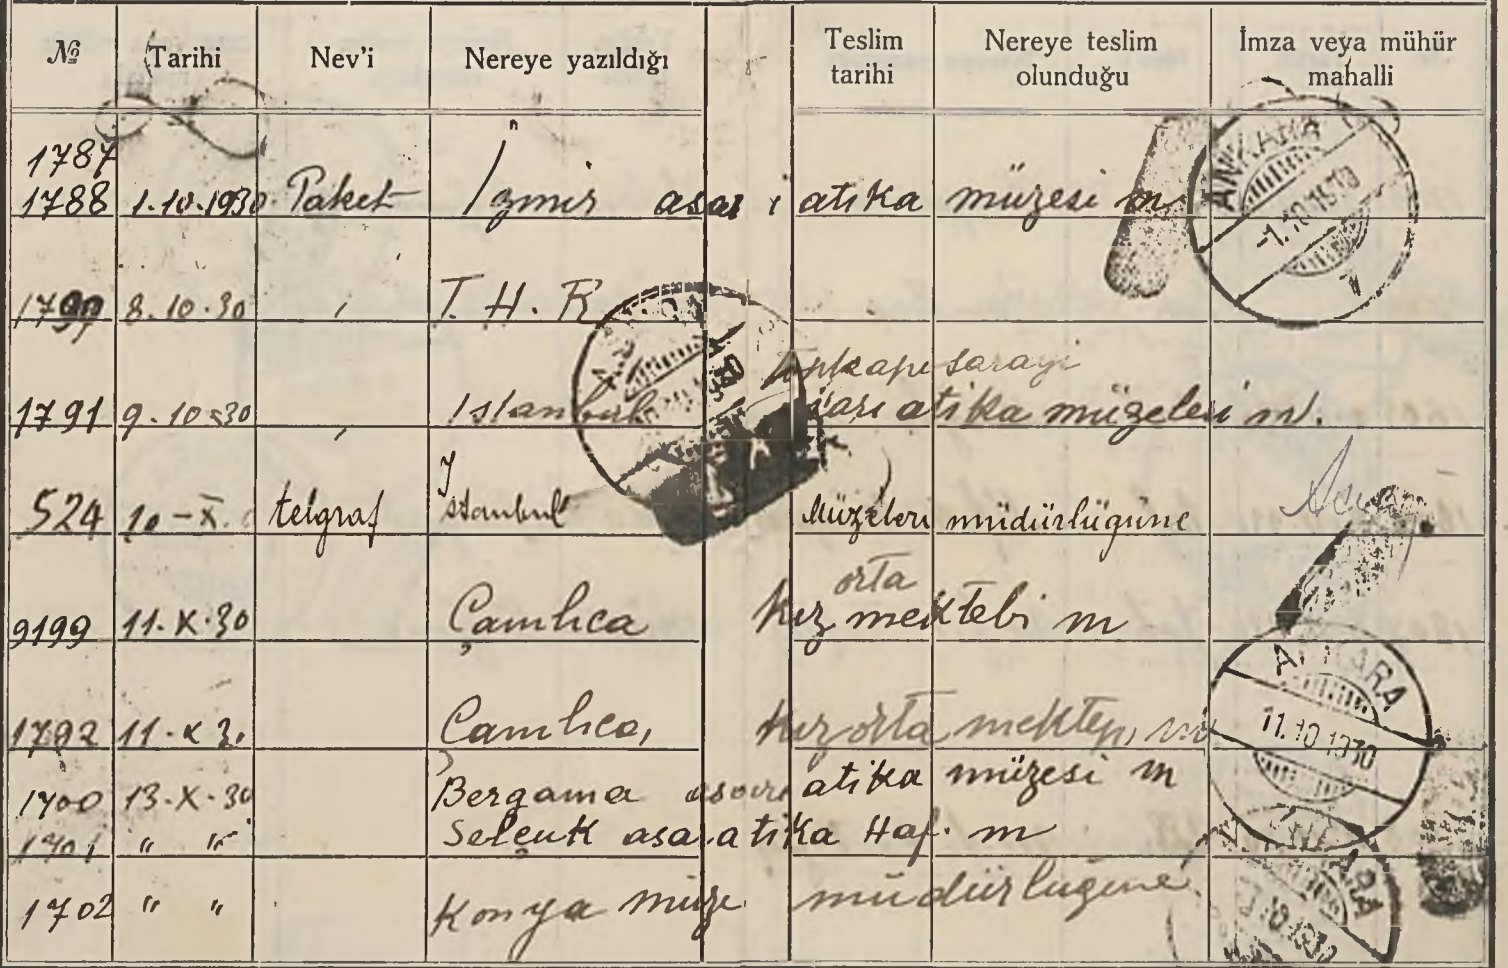 № Tarihi Nev'i Nereye yazıldığı Teslim tarihi Nereye teslim olunduğu İmza veya mühür mahalli
1787
1788 1.10.1930 Paket İzmir asar i atika müzesi m
ANKARA
-1.10.1930
8.10.30 T. H. K
Topkapı sarayi
1791 9.10.30 Istanbul atika müzeleri m.
524 10-X. telgraf Istanbul Müzeleri müdürlügüne
orta
9199 11.X.30 Çamlıca kız mektebi m
1792 11.X 3. Çamlıca, kız orta mektep, m
ANKARA
11.10.1930
1700 13.X.30 Bergama asarı atika müzesi m
1701 " " Selçuk asaratika Haf. m
1702 " " Konya müze müdürlüğüne
ANKARA